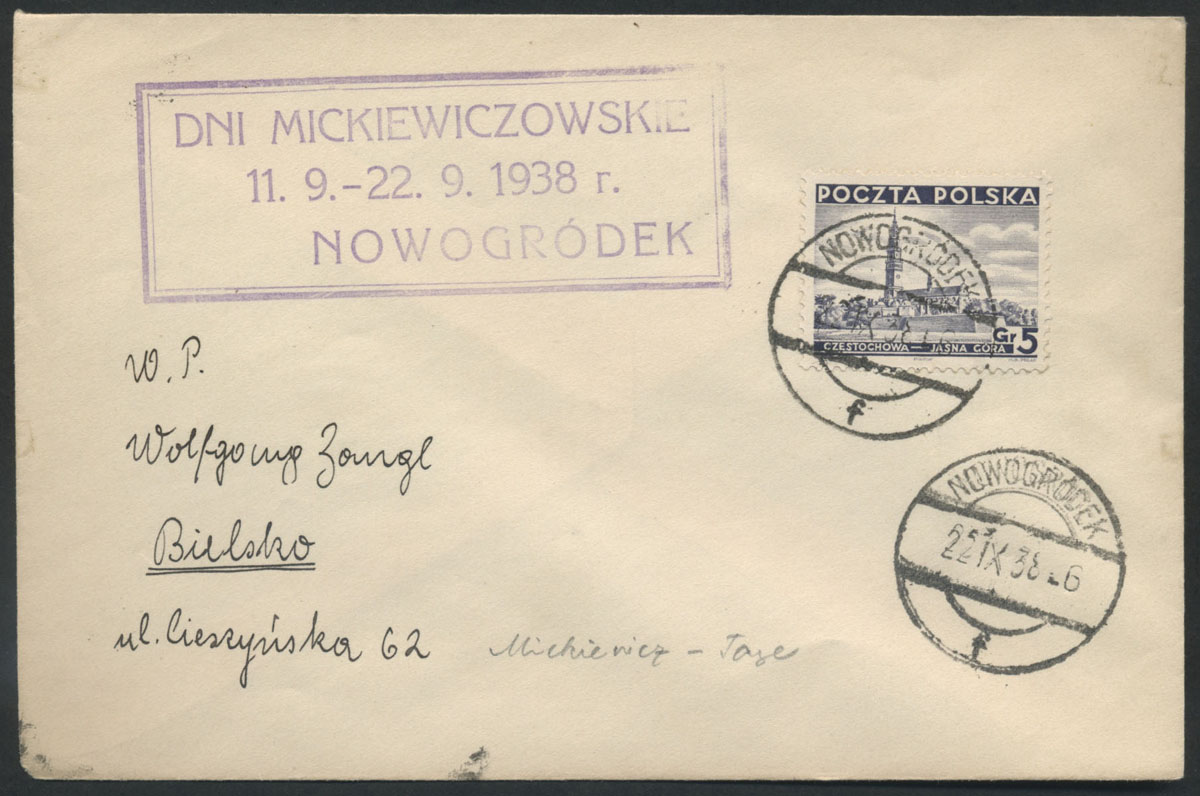 DNI MICKIEWICZOWSKIE
11. 9.-22. 9. 1938 r.
NOWOGRÓDEK
POCZTA POLSKA
NOWOGRÓDEK
CZĘSTOCHOWA — JASNA GÓRA
Gr 5
f
W. P.
Wolfgang Zangl
Bielsko
ul. Cieszyńska 62
Mickiewicz - Tage
NOWOGRÓDEK
22 IX 38 - 6
f